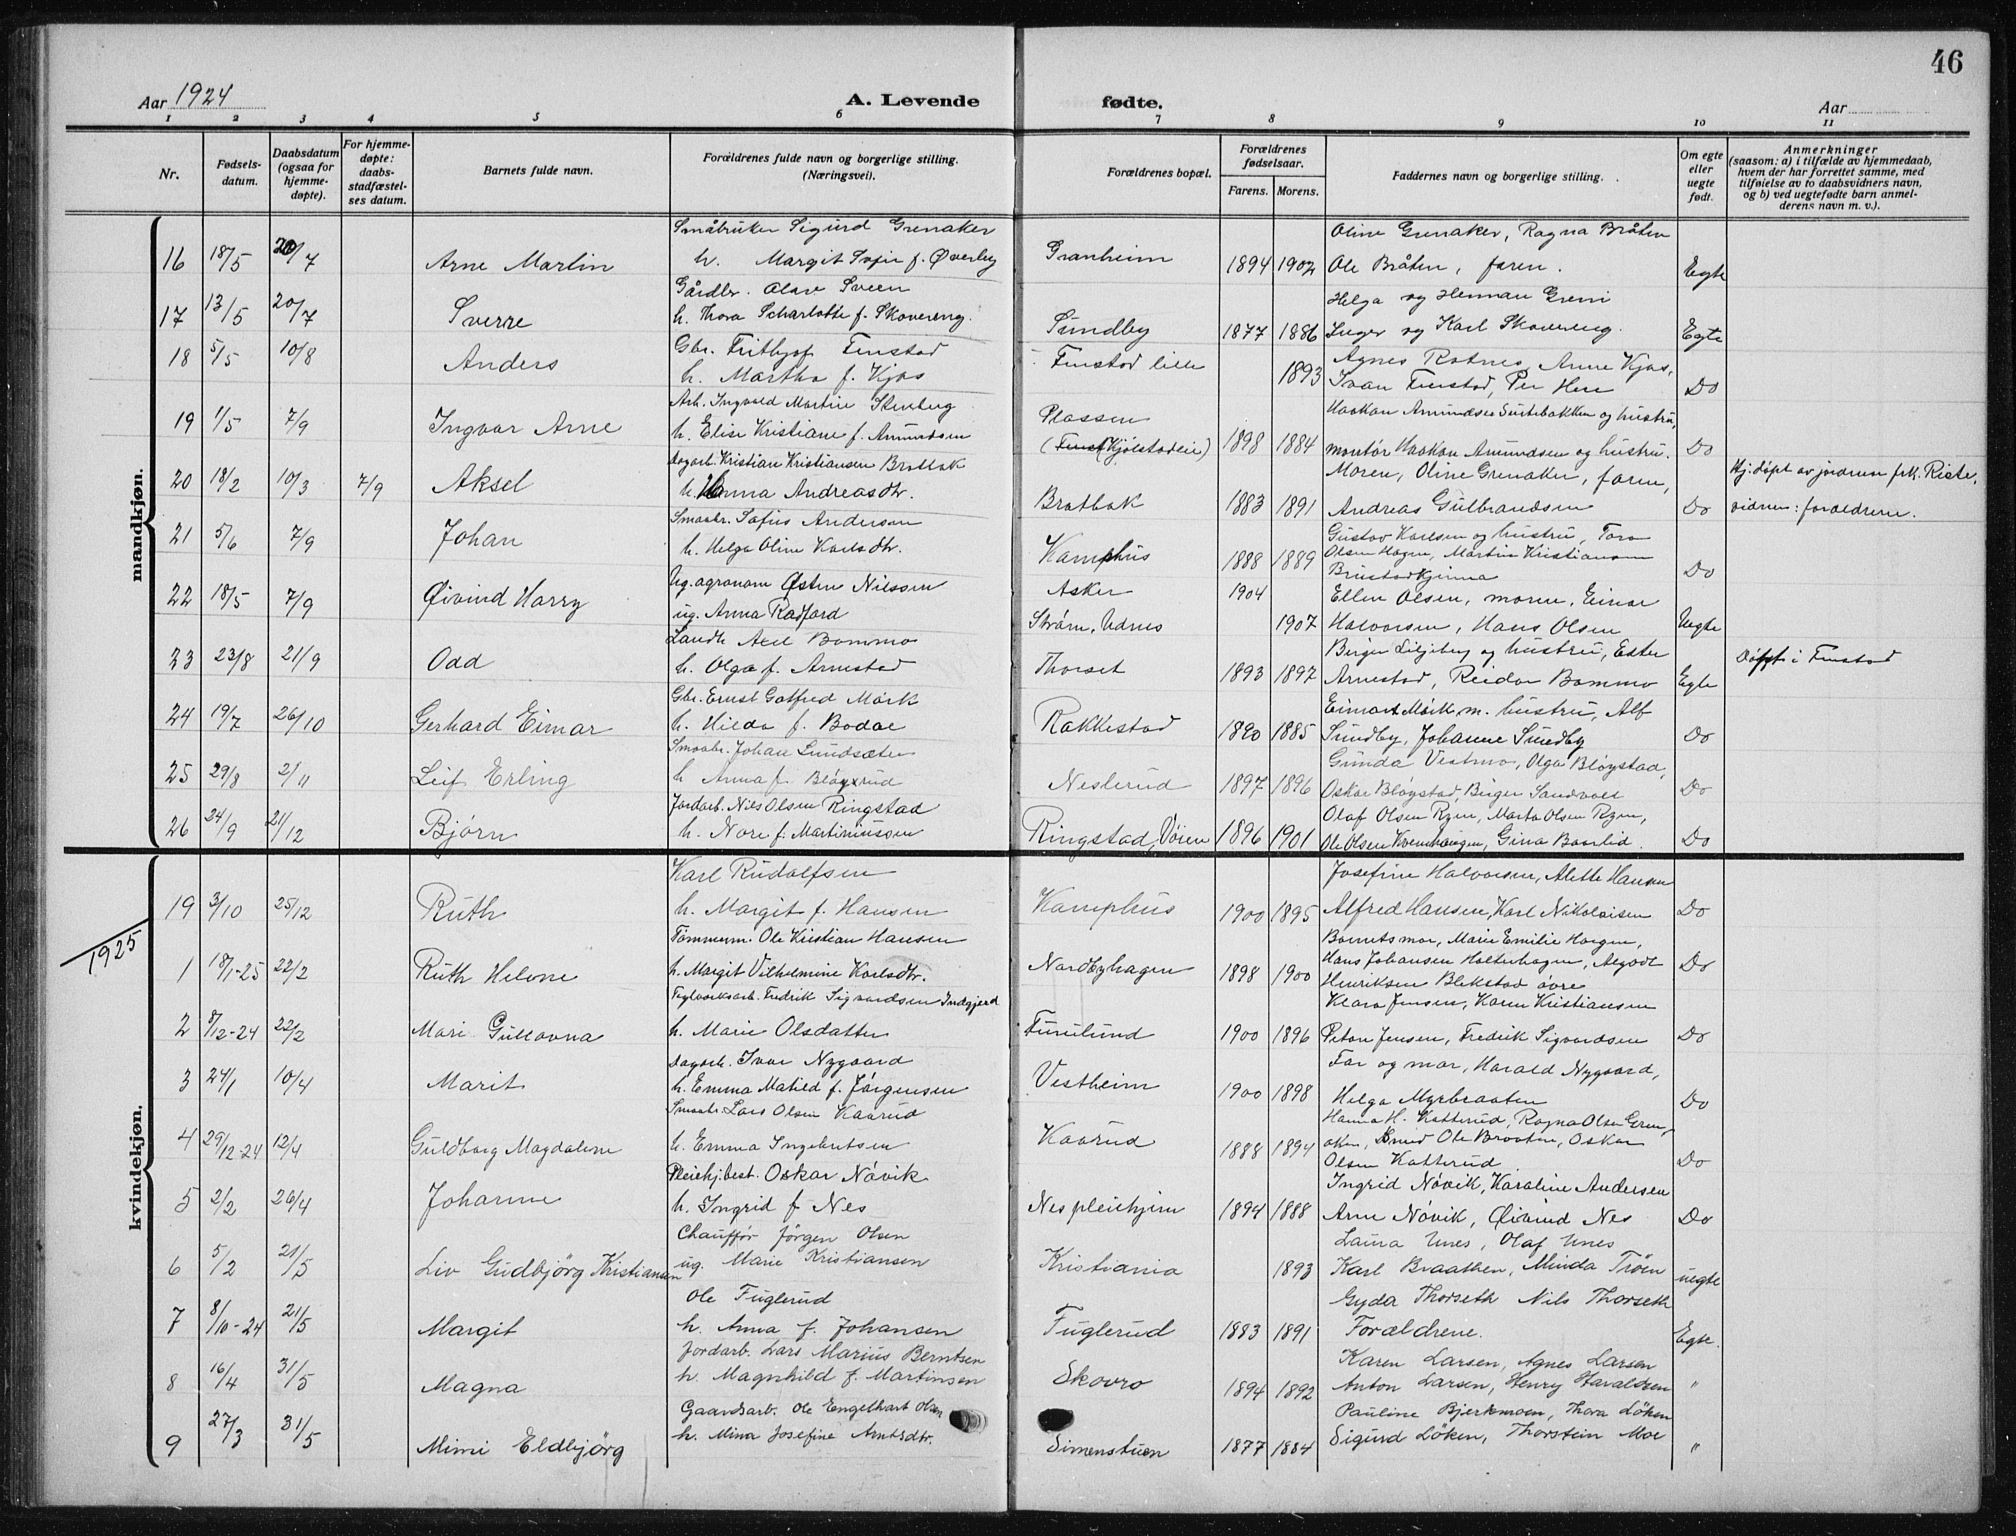 46
Aar 1924
A. Levende fødte.
Aar
1 2 3 4 5 6 7 8 9 10 11
Nr.
Fødsels-datum.
Daabsdatum (ogsaa for hjemme-døpte).
For hjemme-døpte: daabs-stadfæstel-ses datum.
Barnets fulde navn.
Forældrenes fulde navn og borgerlige stilling. (Næringsvei).
Forældrenes bopæl.
Forældrenes fødselsaar.
Farens. Morens.
Faddernes navn og borgerlige stilling.
Om egte eller uegte født.
Anmerkninger
(saasom: a) i tilfælde av hjemmedaab, hvem der har forrettet samme, med tilføielse av to daabsvidners navn, og b) ved uegtefødte barn anmel-derens navn m. v.).
mandkjøn.
Småbruker Sigurd Grenaker Oline Grenaker, Ragna Bråten
16 18/5 20/7 Arne Martin h. Margit Sofie f. Øverby Granheim 1894 1902 Ole Bråten, faren. Egte
Gårdbr. Olav Sveen Helga og Herman Greni
17 13/5 20/7 Sverre h. Thora Scharlotte f. Skovereng. Sundby 1877 1886 Inger og Karl Skovereng. Egte
18 5/5 10/8 Anders Gbr. Frithjof Finstad Finstad lille Agnes Rotnes, Anne Kjos,
h. Martha f. Kjos 1893 Ivar Finstad, Per Do
19 1/5 7/9 Ingvar Arne Arb. Ingvald Martin Skreberg Plassen Haakon Amundsen og hustru,
h. Elise Kristiane f. Amundsen (Kjølstadeie) 1898 1884 montør Haakon Amundsen og hustru. Do
20 18/2 10/3 7/9 Aksel dagarb. Kristian Kristiansen Bratbak Moren, Oline Grenaker, faren, Hj. døpt av jordmor frk. Riste,
h. Anna Andreasdtr. Bratbak 1883 1891 Andreas Gulbrandsen Do vidner: forældrene.
21 5/6 7/9 Johan Smaabr. Sofus Andersen Gustav Karlsen og hustru, Tora
h. Helga Oline Karlsdtr. Kamphus 1888 1889 Olsen Hagen, Martin Kristiansen Do
22 18/5 7/9 Øivind Harry Ug. agronom Østen Nilssen Asker 1904 Ellen Olsen, moren, Einar
ug. Anna Radford Strøm, Udnes 1907 Halvorsen, Hans Olsen Uegte
23 23/8 21/9 Odd Landh. Axel Bommo Birger Liljeberg og hustru, Ester
h. Olga f. Arnestad Thorset 1893 1897 Arnestad, Reidar Bommo Egte Døpt i Finstad
24 19/7 26/10 Gerhard Eimar Gbr. Ernst Gotfred Mørk Eimart Mørk m. hustru, Alf
h. Hilda f. Bodal Rakkestad 1890 1885 Sundby, Johanne Sundby Do
25 29/8 2/11 Leif Erling Smaabr. Johan Lundsæter Gunda Vestmo, Olga Bløystad,
h. Anna f. Neslerud 1897 1896 Oskar Bløystad, Birger Sandvold Do
26 24/9 21/12 Bjørn Jordarb. Nils Olsen Ringstad Olaf Olsen Ryen, Marta Olsen Ryen,
h. Nora f. Martiniussen Ringstad, Vøien 1896 1901 Ole Olsen Kvernhaugen, Gina Baarlid. Do
kvindekjøn.
Karl Rudolfsen Josefine Halvorsen, Alette Hansen
19 3/10 25/12 Ruth h. Margit f. Hansen Kamphus 1900 1895 Alfred Hansen, Karl Nikolaisen Do
1925 Tømmerm. Ole Kristian Hansen Barnets mor, Marie Emilie Haugen,
1 18/1-25 22/2 Ruth Helene h. Margit Vilhelmine Karlsdtr. Nordbyhagen 1898 1900 Hans Johansen Holterhagen, Algodt Do
Teglverksarb. Fredrik Sigvardsen Indgjerd Henriksen Blekstad øvre
Klara Jensen, Karen Kristiansen
2 8/12-24 22/2 Mari Gustavna h. Marie Olsdatter Furulund 1900 1896 Petra Jensen, Fredrik Sigvardsen Do
Dagarb. Ivar Nygaard Far og mor, Harald Nygaard,
3 24/1 10/4 Marit h. Emma Matild f. Jørgensen Vestheim 1900 1898 Helga Myrbraaten Do
Smaabr. Lars Olsen Kaarud Hanna H. Katterud, Ragna Olsen Gren-
4 29/12-24 12/4 Guldborg Magdalene h. Emma Ingebretsen Kaarud 1888 1894 aker, Smed Ole Braaten, Oskar
Olsen Katterud Do
Pleiehj.best. Oskar Nøvik Ingrid Nøvik, Karoline Andersen
5 2/2 26/4 Johanne h. Ingrid f Nes Nes pleiehjem 1894 1888 Arne Nøvik, Øivind Nes Do
Chauffør Jørgen Olsen Laura Unes, Olaf Unes
6 5/2 21/5 Liv Gudbjörg Kristiansen ug. Marie Kristiansen Kristiania 1893 Karl Braathen, Minda Trøen uegte
Ole Fuglerud Gyda Thorseth Nils Thorseth
7 8/10-24 21/5 Margit h. Anna f. Johansen Fuglerud 1883 1891 Forældrene. Egte
Jordarb. Lars Marius Berntsen Karen Larsen, Agnes Larsen
8 16/4 31/5 Magna h. Magnhild f. Martinsen Skovro 1894 1892 Anton Larsen, Henry Havaldsen "
Gaardsarb. Ole Engelhart Olsen Pauline Bjerkmoen, Thora Löken
9 27/3 31/5 Mimi Eldbjörg h. Mina Josefine Arntsdtr. Simenstuen 1877 1884 Sigurd Löken, Thorstein Moe "